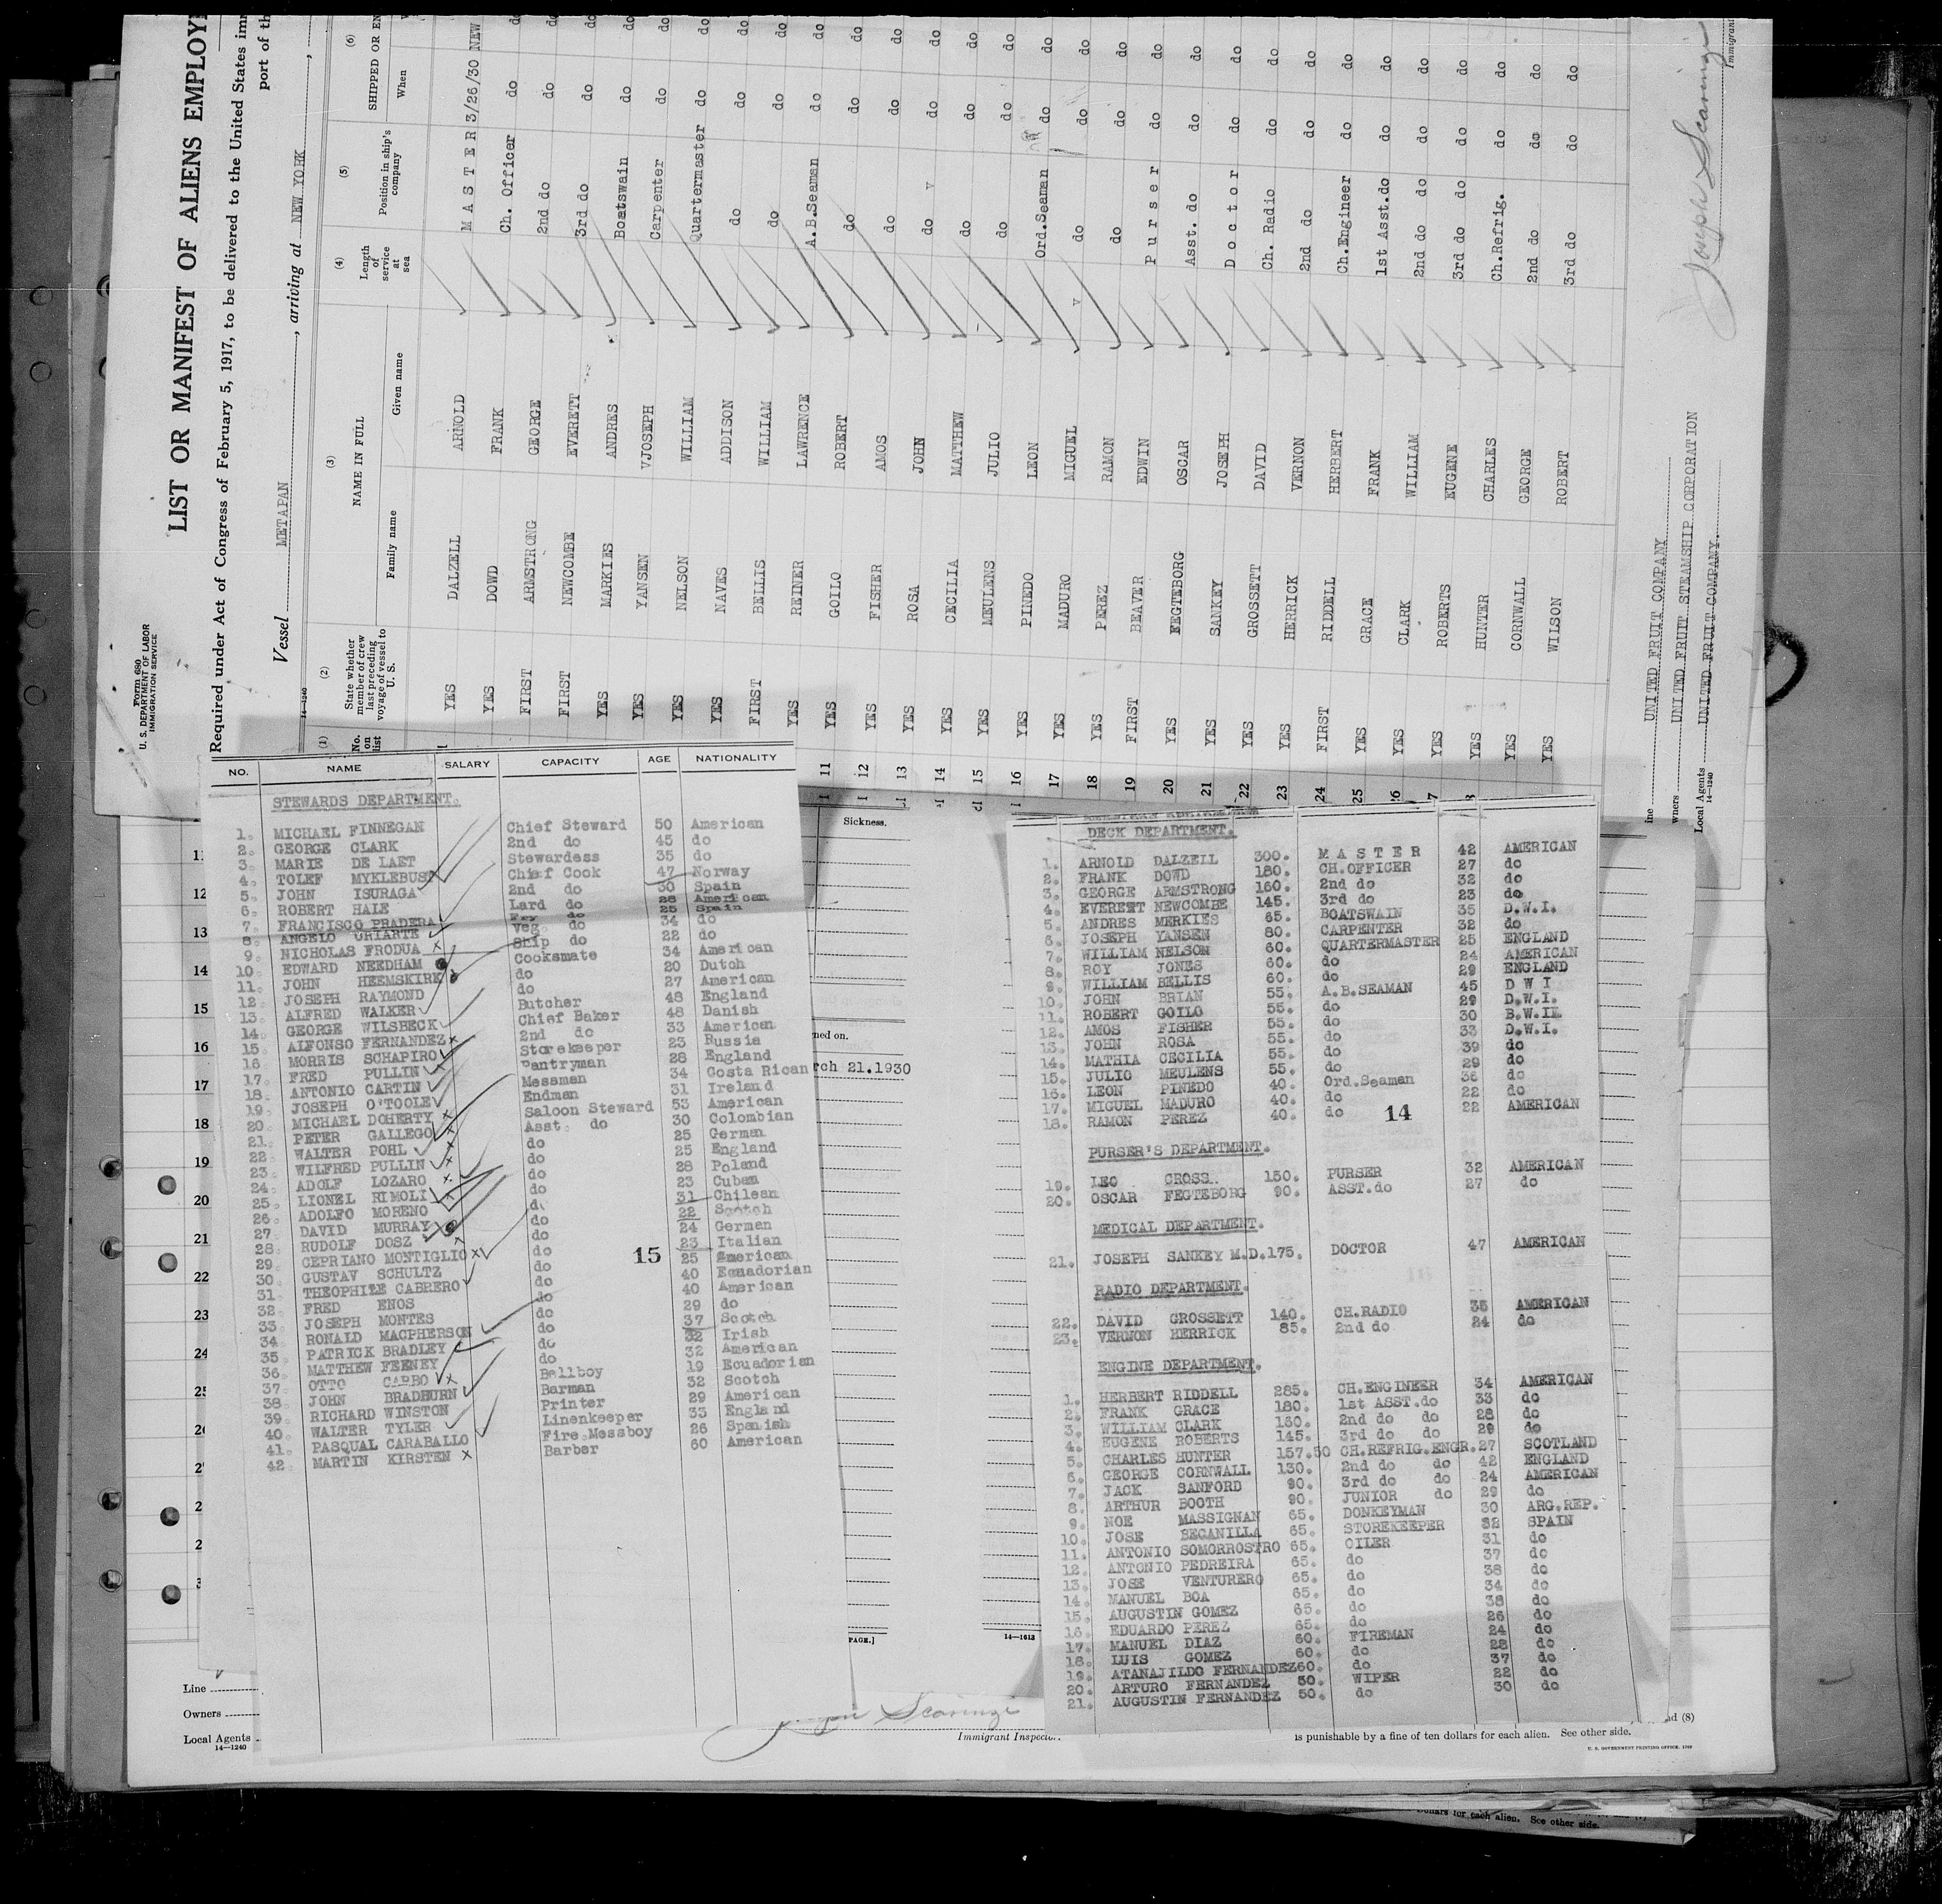 Form 680
U. S. DEPARTMENT OF LABOR
IMMIGRATION SERVICE
LIST OR MANIFEST OF ALIENS EMPLOY
Required under Act of Congress of February 5, 1917, to be delivered to the United States imm
port of th
Vessel METAPAN, arriving at NEW YORK,
14—1240
(1) (2) (3) (4) (5) (6)
No. on list
State whether member of crew last preceding voyage of vessel to U. S.
NAME IN FULL
Family name Given name
Length of service at sea
Position in ship's company
SHIPPED OR EN
When
YES DALZELL ARNOLD MASTER 3/26/30 NEW
YES DOWD FRANK Ch. Officer do do
FIRST ARMSTRONG GEORGE 2nd do do do
FIRST NEWCOMBE EVERETT 3rd do do do
YES MARKIES ANDRES Boatswain do do
YES YANSEN VJOSEPH Carpenter do do
YES NELSON WILLIAM Quartermaster do do
YES NAVES ADDISON do do do
FIRST BELLIS WILLIAM do do do
YES REINER LAWRENCE A.B.Seaman do do
11 YES GOILO ROBERT do do do
12 YES FISHER AMOS do do do
13 YES ROSA JOHN do do do
14 YES CECILIA MATTHEW do do do
15 YES MEULENS JULIO do do do
16 YES PINEDO LEON Ord.Seaman do do
17 YES MADURO MIGUEL do do do
18 YES PEREZ RAMON do do do
19 FIRST BEAVER EDWIN Purser do do
20 YES FEGTEBORG OSCAR Asst. do do do
21 YES SANKEY JOSEPH Doctor do do
22 YES GROSSETT DAVID Ch. Radio do do
23 YES HERRICK VERNON 2nd do do do
24 FIRST RIDDELL HERBERT Ch.Engineer do do
25 YES GRACE FRANK 1st Asst.do do do
26 YES CLARK WILLIAM 2nd do do do do
7 YES ROBERTS EUGENE 3rd do do do do
8 YES HUNTER CHARLES Ch.Refrig. do do
YES CORNWALL GEORGE 2nd do do do
YES WILSON ROBERT 3rd do do do
ine UNITED FRUIT COMPANY
wners UNITED FRUIT STEAMSHIP CORPORATION
Local Agents UNITED FRUIT COMPANY.
14—1240
Joseph Scaringi
Immigrant
NO. NAME SALARY CAPACITY AGE NATIONALITY
STEWARDS DEPARTMENT.
1. MICHAEL FINNEGAN Chief Steward 50 American
2. GEORGE CLARK 2nd do 45 do
3. MARIE DE LAET Stewardess 35 do
4. TOLEF MYKLEBUST Chief Cook 47 Norway
5. JOHN ISURAGA 2nd do 30 Spain
6. ROBERT HALE Lard do 28 American
7. FRANCISCO PRADERA Fry do 25 Spain
8. ANGELO URIARTE Veg. do 34 do
9. NICHOLAS FRODUA Ship do 22 do
10. EDWARD NEEDHAM Cooksmate 34 American
11. JOHN HEEMSKIRK do 20 Dutch
12. JOSEPH RAYMOND do 27 American
13. ALFRED WALKER Butcher 48 England
14. GEORGE WILSBECK Chief Baker 48 Danish
15. ALFONSO FERNANDEZ 2nd do 33 American
16. MORRIS SCHAPIRO Storekeeper 23 Russia
17. FRED PULLIN Pantryman 28 England
18. ANTONIO CARTIN Messman 34 Costa Rican
19. JOSEPH O'TOOLE Endman 31 Ireland
20. MICHAEL DOHERTY Saloon Steward 53 American
21. PETER GALLEGO Asst. do 30 Colombian
22. WALTER POHL do 25 German
23. WILFRED PULLIN do 25 England
24. ADOLF LOZARO do 28 Poland
25. LIONEL RIMOLI do 23 Cuban
26. ADOLFO MORENO do 31 Chilean
27. DAVID MURRAY do 22 Scotch
28. RUDOLF DOSZ do 24 German
29. CEPRIANO MONTIGLIO do 23 Italian
30. GUSTAV SCHULTZ do 25 American
31. THEOPHILE CABRERO do 40 Ecuadorian
32. FRED ENOS do 40 American
33. JOSEPH MONTES do 29 do
34. RONALD MACPHERSON do 37 Scotch
35. PATRICK BRADLEY do 32 Irish
36. MATTHEW FEENEY do 32 American
37. OTTO CARBO Bellboy 19 Ecuadorian
38. JOHN BRADBURN Barman 32 Scotch
39. RICHARD WINSTON Printer 29 American
40. WALTER TYLER Linenkeeper 33 England
41. PASQUAL CARABALLO Fire.Messboy 26 Spanish
42. MARTIN KIRSTEN Barber 60 American
15
DECK DEPARTMENT.
1. ARNOLD DALZELL 300. MASTER 42 AMERICAN
2. FRANK DOWD 180. CH.OFFICER 27 do
3. GEORGE ARMSTRONG 160. 2nd do 32 do
4. EVEREST NEWCOMBE 145. 3rd do 23 do
5. ANDRES MERKIES 65. BOATSWAIN 35 D.W.I.
6. JOSEPH YANSEN 80. CARPENTER 32 do
7. WILLIAM NELSON 60. QUARTERMASTER 25 ENGLAND
8. ROY JONES 60. do 24 AMERICAN
9. WILLIAM BELLIS 60. do 29 ENGLAND
10. JOHN BRIAN 55. A.B.SEAMAN 45 D W I
11. ROBERT GOILO 55. do 29 D.W.I.
12. AMOS FISHER 55. do 30 B.W.II.
13. JOHN ROSA 55. do 33 D.W.I.
14. MATHIA CECILIA 55. do 39 do
15. JULIO MEULENS 55. do 29 do
16. LEON PINEDO 40. Ord.Seaman 36 do
17. MIGUEL MADURO 40. do 22 do
18. RAMON PEREZ 40. do 22 AMERICAN
14
PURSER'S DEPARTMENT.
19. LEO CROSS. 150. PURSER 32 AMERICAN
20. OSCAR FEGTEBORG 90. ASST.do 27 do
MEDICAL DEPARTMENT.
21. JOSEPH SANKEY M.D.175. DOCTOR 47 AMERICAN
RADIO DEPARTMENT.
22. DAVID GROSSETT 140. CH.RADIO 35 AMERICAN
23. VERNON HERRICK 85. 2nd do 24 do
ENGINE DEPARTMENT.
1. HERBERT RIDDELL 285. CH.ENGINEER 34 AMERICAN
2. FRANK GRACE 180. 1st ASST.do 33 do
3. WILLIAM CLARK 160. 2nd do do 28 do
4. EUGENE ROBERTS 145. 3rd do do 29 do
5. CHARLES HUNTER 157.50 CH.REFRIG.ENGR. 27 SCOTLAND
6. GEORGE CORNWALL 130. 2nd do do 42 ENGLAND
7. JACK SANFORD 90. 3rd do do 24 AMERICAN
8. ARTHUR BOOTH 90. JUNIOR do 29 do
9. NOE MASSIGNAN 65. DONKEYMAN 30 ARG.REP.
10. JOSE BEGANILLA 65. STOREKEEPER 32 SPAIN
11. ANTONIO SOMORROSTRO 65. OILER 31 do
12. ANTONIO PEDREIRA 65. do 37 do
13. JOSE VENTURERO 65. do 38 do
14. MANUEL BOA 65. do 34 do
15. AUGUSTIN GOMEZ 65. do 38 do
16. EDUARDO PEREZ 65. do 26 do
17. MANUEL DIAZ 60. FIREMAN 24 do
18. LUIS GOMEZ 60. do 28 do
19. ATANAJILDO FERNANDEZ 60. do 37 do
20. ARTURO FERNANDEZ 50. WIPER 22 do
21. AUGUSTIN FERNANDEZ 50. do 30 do
Sickness.
ned on.
rch 21.1930
11
12
13
14
15
16
17
18
19
20
21
22
23
24
25
PAGE.]
14—1613
Line
Owners
Local Agents
14—1240
Scaringi
Immigrant Inspector.
nd (8)
is punishable by a fine of ten dollars for each alien. See other side.
U. S. GOVERNMENT PRINTING OFFICE
Dollars for each alien. See other side.